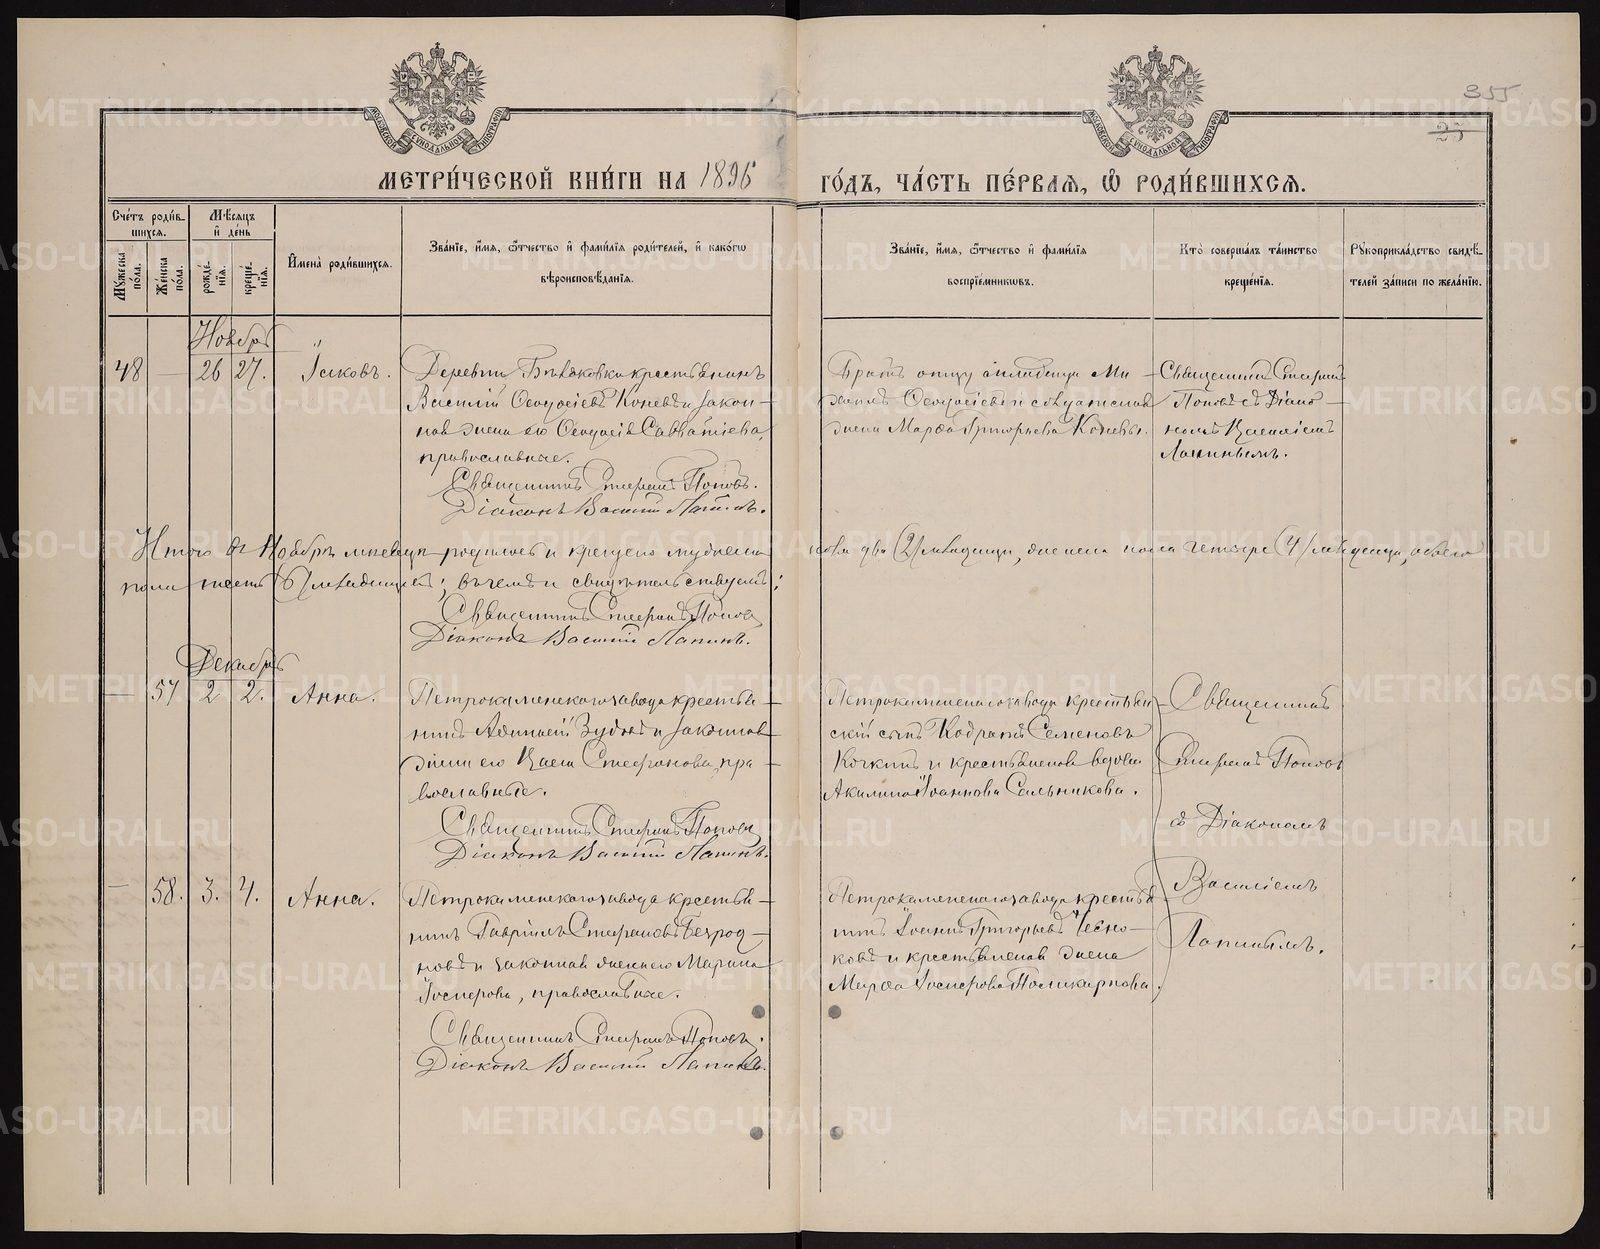 355
25
МОСКОВСКОЙ СѴНОДАЛЬНОЙ ТИПОГРАФІИ
МОСКОВСКОЙ СѴНОДАЛЬНОЙ ТИПОГРАФІИ
МЕТРИ́ЧЕСКОЙ КНИ́ГИ НА 1896 ГО́ДЪ, ЧА́СТЬ ПЕ́РВАЯ, Ѡ҆ РОДИ́ВШИХСЯ.
Сче́тъ роди́вшихся.
Мꙋ́жеска по́ла.
Же́нска по́ла.
Мѣ́сяцъ и҆ де́нь
рожде́нїя.
креще́нїя.
И҆мена̀ роди́вшихся.
Зва́нїе, и҆́мя, ѻ҆́тчество и҆ фами́лїя роди́телей, и҆ како́гѡ
вѣроисповѣ́данїя.
Зва́нїе, и҆́мя, ѻ҆́тчество и҆ фами́лїя
воспрїе́мниковъ.
Кто̀ соверша́лъ та́инство
креще́нїя.
Рꙋкоприкла́дство свидѣ́-
телей за́писи по жела́нїю.
Ноябрь
48 — 26 27. Іаковъ.
Деревни крестьянинъ
Василій Ѳеодосіевъ Коневъ и закон-
ная жена его Ѳеодосія Савватіева,
православные.
Священникъ Стефанъ Поповъ.
Діаконъ Василій Лапинъ.
Ми-
хаилъ Ѳеодосіевъ и
жена Марѳа Григорьева Коневы.
Священникъ Стефанъ
Поповъ съ Діако-
номъ Василіемъ
Лапинымъ.
Итого въ Ноябрѣ мѣсяцѣ родилось и крещено мужеска пола два (2) младенца, женска пола четыре (4) младенца, обоего
пола шесть (6) младенцевъ; въ чемъ и свидѣтельствуемъ:
Священникъ Стефанъ Поповъ
Діаконъ Василій Лапинъ.
Декабрь
— 57 2 2. Анна.
Петрокаменскаго завода крестья-
нинъ Зубовъ и законная
жена его Васса Стефанова, пра-
вославные.
Священникъ Стефанъ Поповъ
Діаконъ Василій Лапинъ.
Петрокаменскаго завода крестьян-
скій сынъ Кодратъ Семеновъ
и крестьянская вдова
Акилина Іоаннова Сальникова.
Священникъ
Стефанъ Поповъ
съ Діакономъ
Василіемъ
Лапинымъ.
— 58. 3. 4. Анна.
Петрокаменскаго завода крестья-
нинъ Гавріилъ Стефановъ Безрод-
новъ и законная жена его Марина
Іосифова, православные.
Священникъ Стефанъ Поповъ.
Діаконъ Василій Лапинъ.
Петрокаменскаго завода крестья-
нинъ Іоаннъ Григорьевъ Чесно-
ковъ и крестьянская жена
Марѳа Іосифова Поликарпова.
METRIKI.GASO-URAL.RU